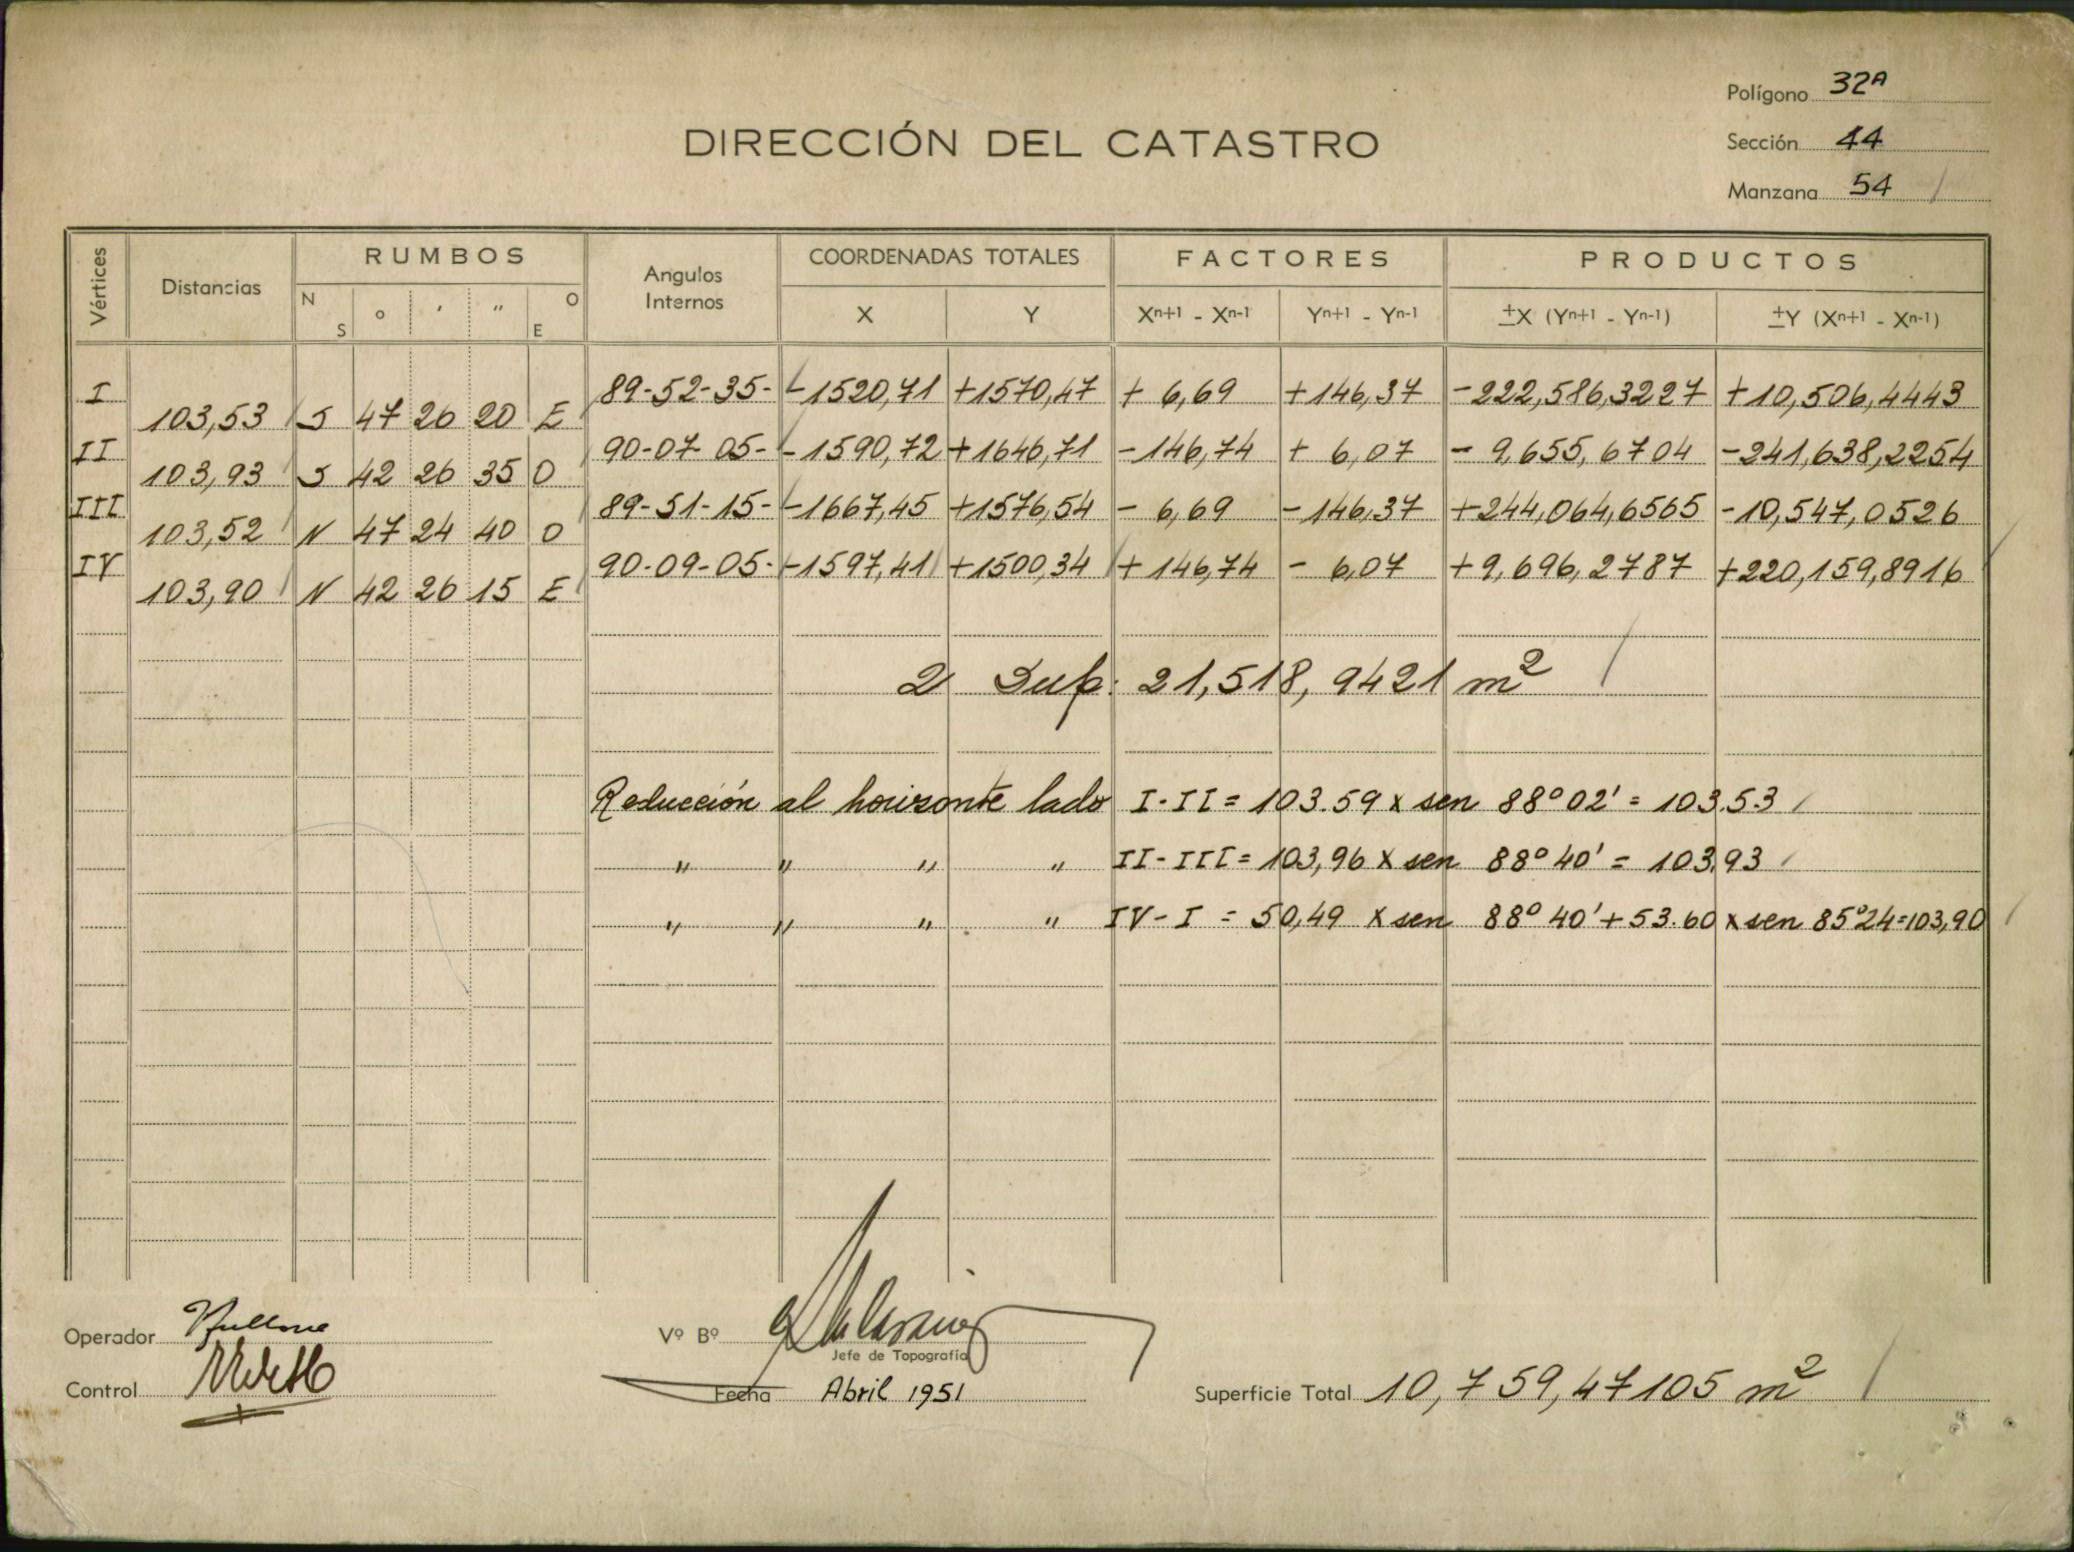 Polígono 32A
Sección 44
Manzana 54
DIRECCIÓN DEL CATASTRO
Vértices Distancias RUMBOS Angulos Internos COORDENADAS TOTALES FACTORES PRODUCTOS
N S o ' " O E X Y Xn+1 - Xn-1 Yn+1 - Yn-1 ±X (Yn+1 - Yn-1) ±Y (Xn+1 - Xn-1)
I 89-52-35- -1520,71 +1570,47 + 6,69 +146,37 -222,586,3227 +10,506,4443
103,53 S 47 26 20 E
II 90-07 05- -1590,72 +1646,71 -146,74 + 6,07 - 9,655,6704 -241,638,2254
103,93 S 42 26 35 O
III 89-51-15- -1667,45 +1576,54 - 6,69 -146,37 +244,064,6565 -10,547,0526
103,52 N 47 24 40 O
IV 90-09-05- -1597,41 +1500,34 +146,74 - 6,07 +9,696,2787 +220,159,8916
103,90 N 42 26 15 E
2 Sup: 21,518,9421 m²
Reducción al horizonte lado I-II = 103.59 x sen 88° 02' = 103.53
" " " " II-III = 103,96 x sen 88° 40' = 103.93
" " " " IV-I = 50,49 x sen 88° 40' + 53.60 x sen 85°24=103,90
Operador
Control
Vº Bº
Jefe de Topografía
Fecha Abril 1951
Superficie Total 10,759,47105 m²